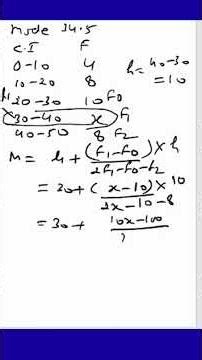 mode 34.5
C.I F
0-10 4
10-20 8 h = 40-30
= 10
30-30 10 f0
30-40 x f1
40-50 8 f2
M = h + (f1-f0) × h
2f1-f0-f2
= 30 + (x-10) × 10
2x-10-8
= 30 + 10x-100